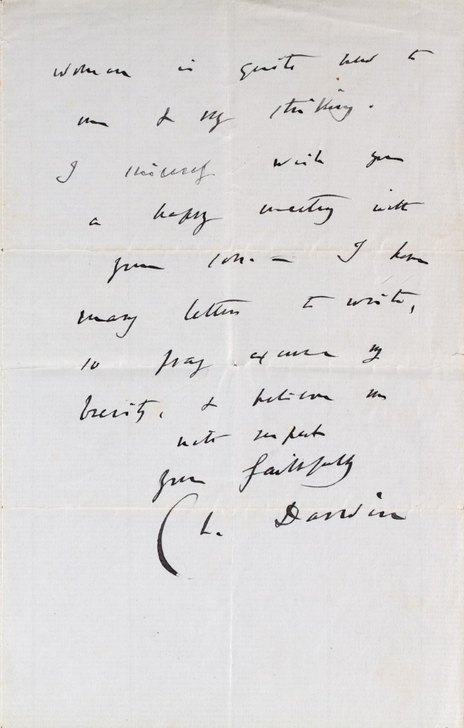 woman is quite new to
me & very striking.
I sincerely wish you
a happy meeting with
your son. — I have
many letters to write,
so pray excuse my
brevity, & believe me
with respect
yours faithfully
Ch. Darwin